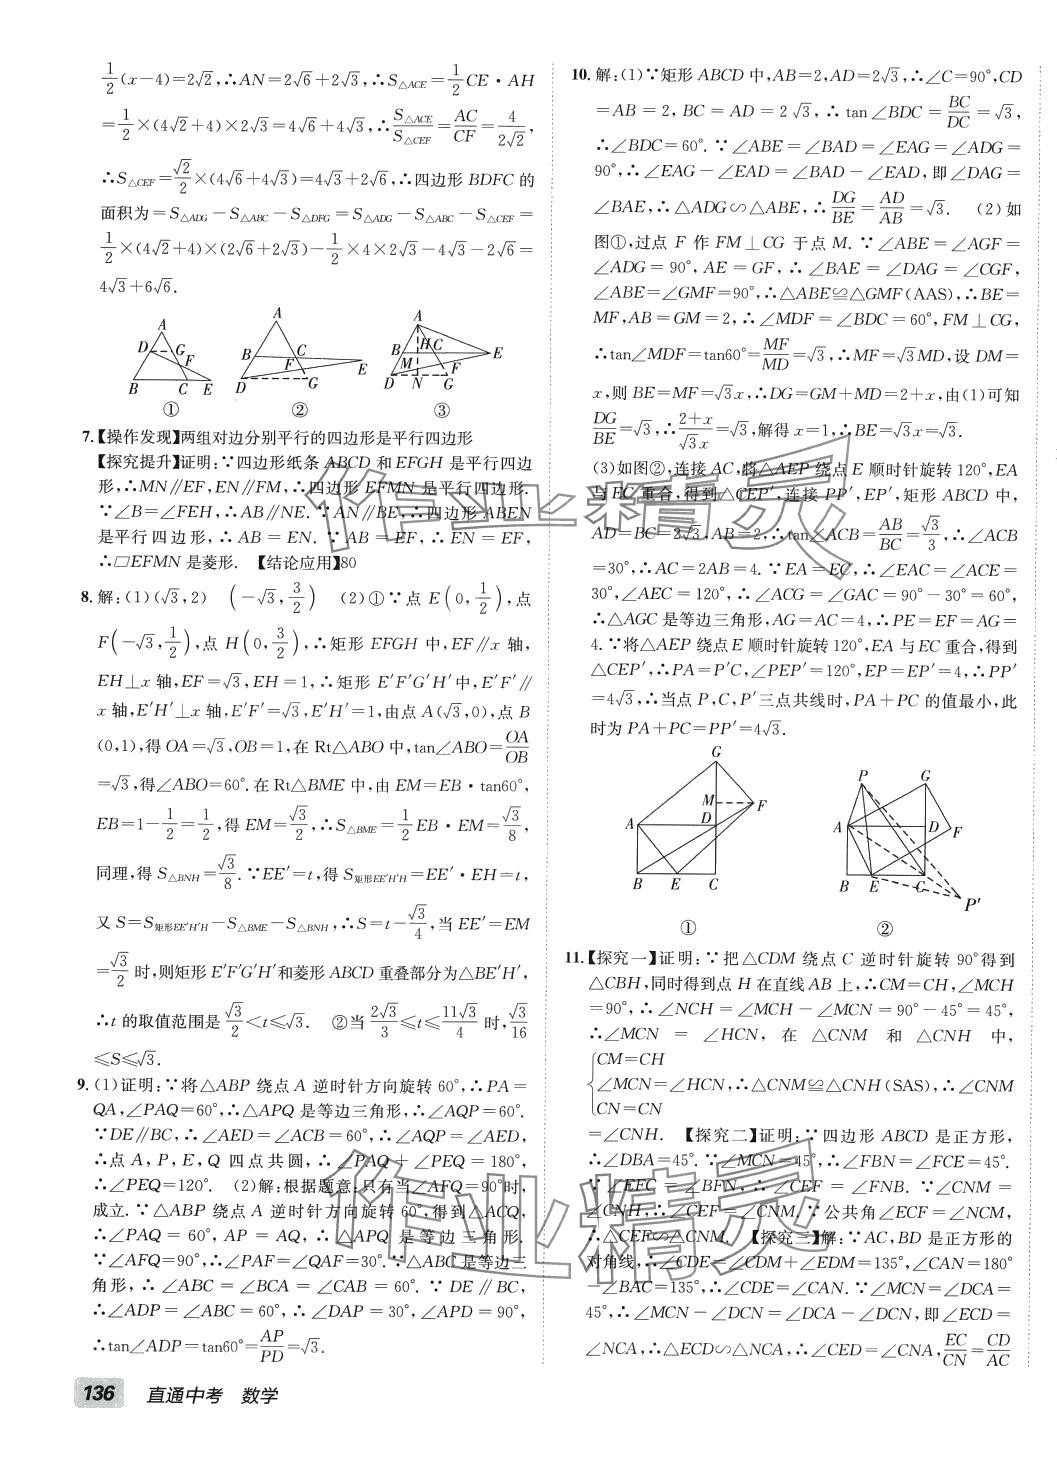 1/2(x-4)=2√2,∴AN=2√6+2√3,∴S△ACE=1/2CE·AH
=1/2×(4√2+4)×2√3=4√6+4√3,∴S△ACE/S△CEF=AC/CF=4/2√2,
∴S△CEF=√2/2×(4√6+4√3)=4√3+2√6,∴四边形BDFC的
面积为=S△ADG-S△ABC-S△DFG=S△ADG-S△ABC-S△CEF=
1/2×(4√2+4)×(2√6+2√3)-1/2×4×2√3-4√3-2√6=
4√3+6√6.
A D G F B C E
①
A B C F E D G
②
A B H C E M F D N G
③
7.【操作发现】两组对边分别平行的四边形是平行四边形
【探究提升】证明:∵四边形纸条ABCD和EFGH是平行四边
形,∴MN∥EF,EN∥FM,∴四边形EFMN是平行四边形.
∵∠B=∠FEH,∴AB∥NE.∵AN∥BE,∴四边形ABEN
是平行四边形,∴AB=EN.∵AB=EF,∴EN=EF,
∴▱EFMN是菱形. 【结论应用】80
8.解:(1)(√3,2) (-√3,3/2) (2)①∵点E(0,1/2),点
F(-√3,1/2),点H(0,3/2),∴矩形EFGH中,EF∥x轴,
EH⊥x轴,EF=√3,EH=1,∴矩形E′F′G′H′中,E′F′∥
x轴,E′H′⊥x轴,E′F′=√3,E′H′=1,由点A(√3,0),点B
(0,1),得OA=√3,OB=1,在Rt△ABO中,tan∠ABO=OA/OB
=√3,得∠ABO=60°.在Rt△BME中,由EM=EB·tan60°,
EB=1-1/2=1/2,得EM=√3/2,∴S△BME=1/2EB·EM=√3/8,
同理,得S△BNH=√3/8.∵EE′=t,得S矩形EE′H′H=EE′·EH=t,
又S=S矩形EE′H′H-S△BME-S△BNH,∴S=t-√3/4,当EE′=EM
=√3/2时,则矩形E′F′G′H′和菱形ABCD重叠部分为△BE′H′,
∴t的取值范围是√3/2<t≤√3. ②当2√3/3≤t≤11√3/4时,√3/16
≤S≤√3.
9.(1)证明:∵将△ABP绕点A逆时针方向旋转60°,∴PA=
QA,∠PAQ=60°,∴△APQ是等边三角形,∴∠AQP=60°.
∵DE∥BC,∴∠AED=∠ACB=60°,∴∠AQP=∠AED,
∴点A,P,E,Q四点共圆,∴∠PAQ+∠PEQ=180°,
∴∠PEQ=120°. (2)解:根据题意:只有当∠AFQ=90°时,
成立.∵△ABP绕点A逆时针方向旋转60°,得到△ACQ,
∴∠PAQ=60°,AP=AQ,∴△APQ是等边三角形.
∵∠AFQ=90°,∴∠PAF=∠QAF=30°.∵△ABC是等边三
角形,∴∠ABC=∠BCA=∠CAB=60°.∵DE∥BC,
∴∠ADP=∠ABC=60°,∴∠DAP=30°,∠APD=90°,
∴tan∠ADP=tan60°=AP/PD=√3.
136 直通中考 数学
10.解:(1)∵矩形ABCD中,AB=2,AD=2√3,∴∠C=90°,CD
=AB=2,BC=AD=2√3,∴tan∠BDC=BC/DC=√3,
∴∠BDC=60°.∵∠ABE=∠BAD=∠EAG=∠ADG=
90°,∴∠EAG-∠EAD=∠BAD-∠EAD,即∠DAG=
∠BAE,∴△ADG∽△ABE,∴DG/BE=AD/AB=√3. (2)如
图①,过点F作FM⊥CG于点M.∵∠ABE=∠AGF=
∠ADG=90°,AE=GF,∴∠BAE=∠DAG=∠CGF,
∠ABE=∠GMF=90°,∴△ABE≌△GMF(AAS),∴BE=
MF,AB=GM=2,∴∠MDF=∠BDC=60°,FM⊥CG,
∴tan∠MDF=tan60°=MF/MD=√3,∴MF=√3MD,设DM=
x,则BE=MF=√3x,∴DG=GM+MD=2+x,由(1)可知
DG/BE=√3,∴2+x/√3x=√3,解得x=1,∴BE=√3x=√3.
(3)如图②,连接AC,将△AEP绕点E顺时针旋转120°,EA
与EC重合,得到△CEP′,连接PP′,EP′,矩形ABCD中,
AD=BC=2√3,AB=2,∴tan∠ACB=AB/BC=√3/3,∴∠ACB
=30°,∴AC=2AB=4.∵EA=EC,∴∠EAC=∠ACE=
30°,∠AEC=120°,∴∠ACG=∠GAC=90°-30°=60°,
∴△AGC是等边三角形,AG=AC=4,∴PE=EF=AG=
4.∵将△AEP绕点E顺时针旋转120°,EA与EC重合,得到
△CEP′,∴PA=P′C,∠PEP′=120°,EP=EP′=4,∴PP′
=4√3,∴当点P,C,P′三点共线时,PA+PC的值最小,此
时为PA+PC=PP′=4√3.
G M F A D B E C
①
P G A D F B E C P′
②
11.【探究一】证明:∵把△CDM绕点C逆时针旋转90°得到
△CBH,同时得到点H在直线AB上,∴CM=CH,∠MCH
=90°,∴∠NCH=∠MCH-∠MCN=90°-45°=45°,
∴∠MCN=∠HCN,在△CNM和△CNH中,
CM=CH
∠MCN=∠HCN,∴△CNM≌△CNH(SAS),∴∠CNM
CN=CN
=∠CNH. 【探究二】证明:∵四边形ABCD是正方形,
∴∠DBA=45°.∵∠MCN=45°,∴∠FBN=∠FCE=45°.
∵∠EFC=∠BFN,∴∠CEF=∠FNB.∵∠CNM=
∠CNH,∴∠CEF=∠CNM.∵公共角∠ECF=∠NCM,
∴△CEF∽△CNM. 【探究三】解:∵AC,BD是正方形的
对角线,∴∠CDE=∠CDM+∠EDM=135°,∠CAN=180°
-∠BAC=135°,∴∠CDE=∠CAN.∵∠MCN=∠DCA=
45°,∴∠MCN-∠DCN=∠DCA-∠DCN,即∠ECD=
∠NCA,∴△ECD∽△NCA,∴∠CED=∠CNA,EC/CN=CD/AC
作业精灵
作业精灵